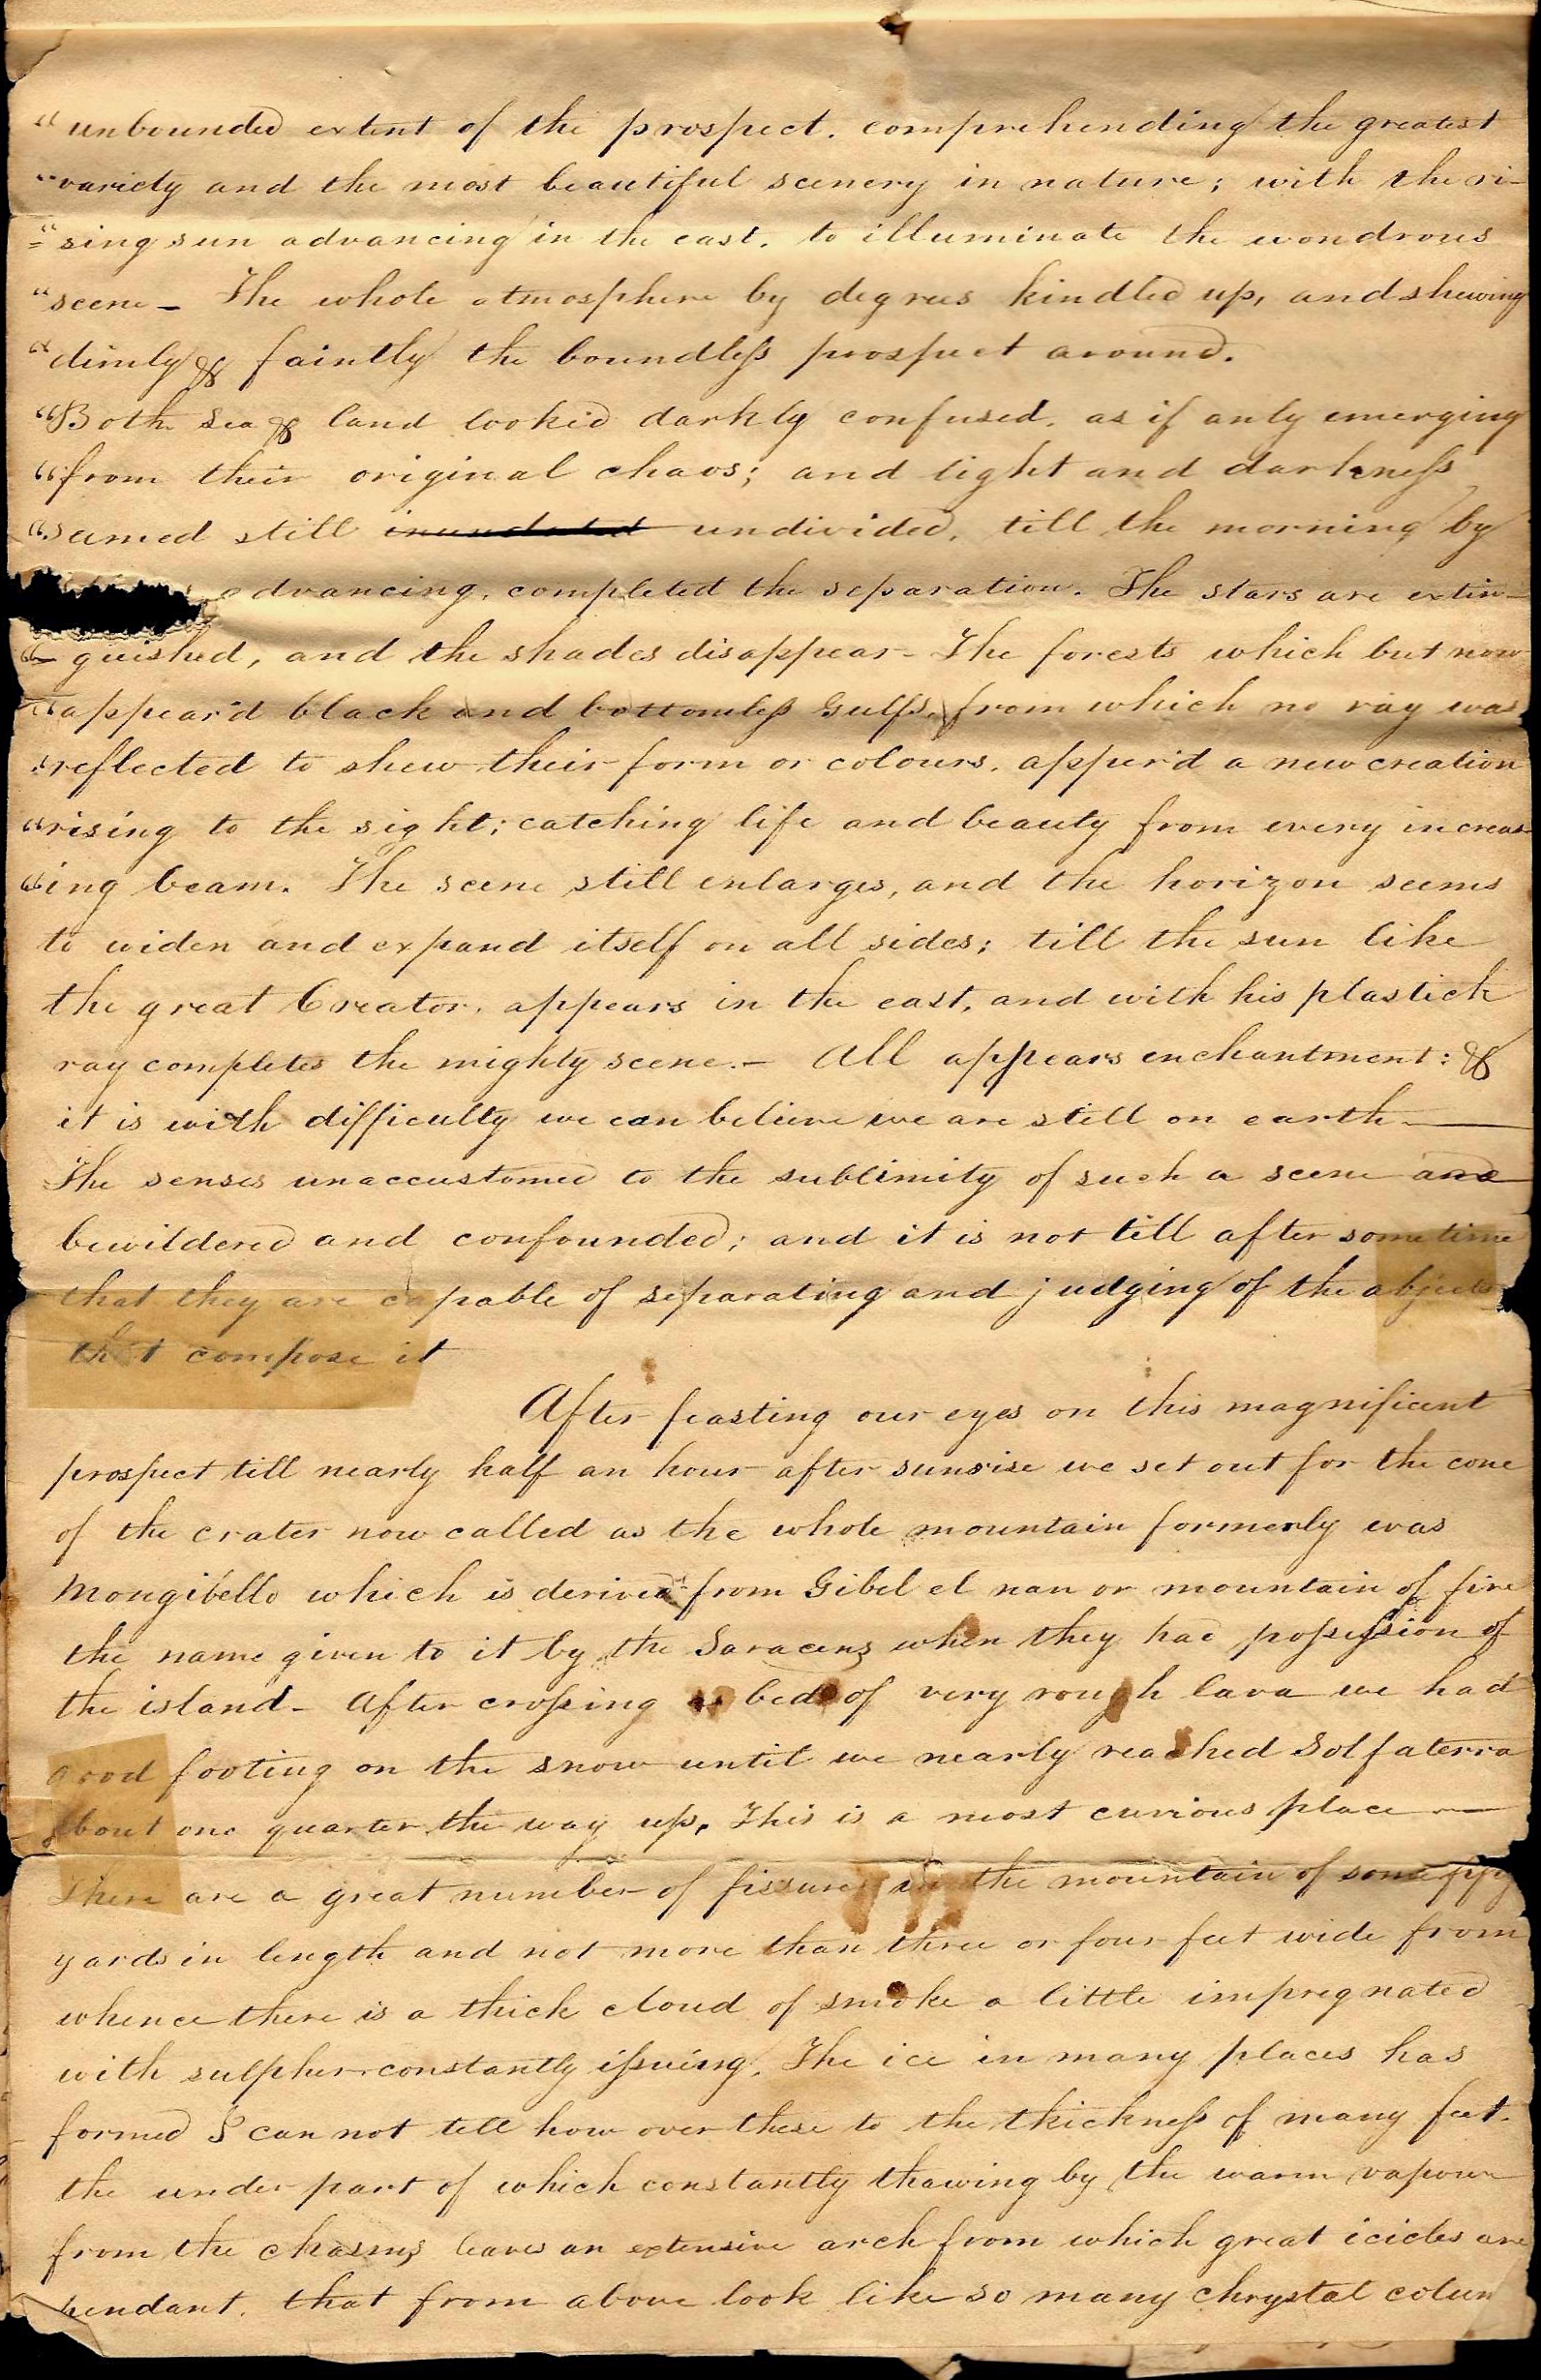 "unbounded extent of the prospect. comprehending the greatest
"variety and the most beautiful scenery in nature; with the ri-
"=sing sun advancing in the east, to illuminate the wondrous
"scene- The whole atmosphere by degrees kindled up, and shewing
"dimly & faintly the boundless prospect around.
"Both Sea & land looked darkly confused, as if only emerging
"from their original chaos; and light and darkness
"seemed still inundated undivided, till the morning by
advancing, completed the separation. The stars are extin-
"-guished, and the shades disappear- The forests which but now
"appear'd black and bottomless Gulfs, from which no ray was
"reflected to shew their form or colours, apper'd a new creation
"rising to the sight; catching life and beauty from every increas-
"ing beam. The scene still enlarges, and the horizon seems
to widen and expand itself on all sides; till the sun like
the great Creator, appears in the east, and with his plastick
ray completes the mighty scene.- All appears enchantment: &
it is with difficulty we can believe we are still on earth-
The senses unaccustomed to the sublimity of such a scene are
bewildered and confounded; and it is not till after sometime
that they are capable of separating and judging of the objects
that compose it
After feasting our eyes on this magnificent
prospect till nearly half an hour after sunrise we set out for the cone
of the crater now called as the whole mountain formerly was
Mongibello which is derived from Gibel el nan or mountain of fire
the name given to it by the Saracens when they had possession of
the island- After crossing a bed of very rough lava we had
good footing on the snow until we nearly reached Solfaterra
about one quarter the way up. This is a most curious place-
There are a great number of fissures in the mountain of some fifty
yards in length and not more than three or four feet wide from
whence there is a thick cloud of smoke a little impregnated
with sulpher constantly issuing. The ice in many places has
formed I can not tell how over these to the thickness of many feet.
the under part of which constantly thawing by the warm vapour
from the chasms leaves an extensive arch from which great icicles are
pendant, that from above look like so many chrystal colum